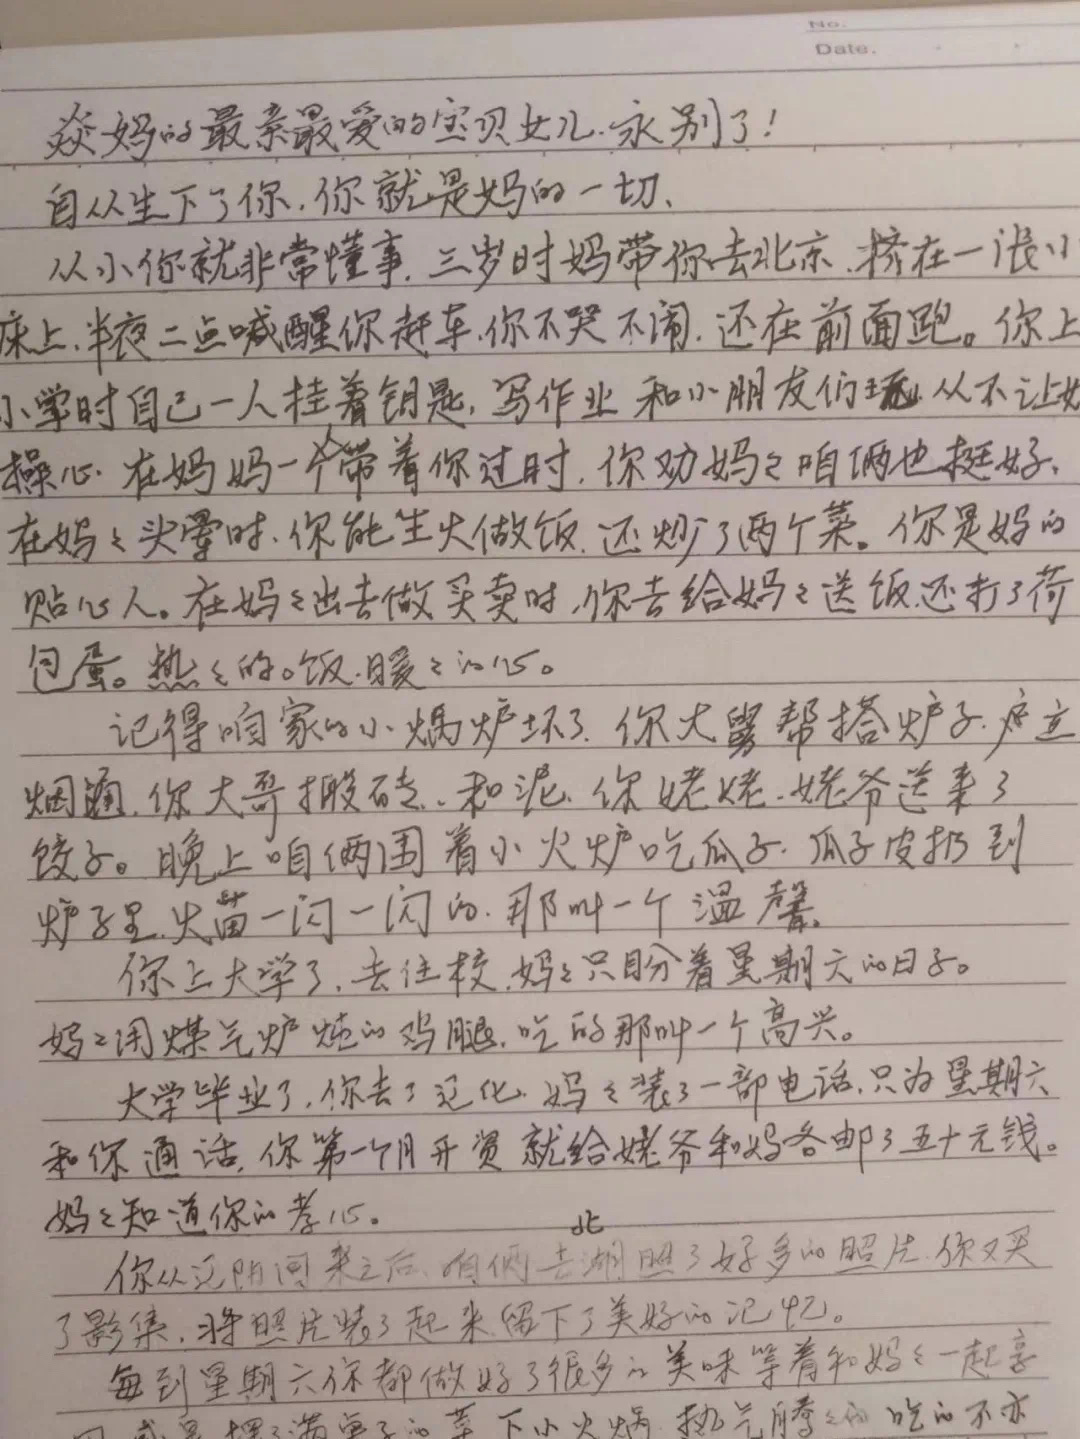 No.
Date.
焱妈的最亲最爱的宝贝女儿.永别了!
自从生下了你.你就是妈的一切.
从小你就非常懂事.三岁时妈带你去北京.挤在一张小
床上.半夜二点喊醒你赶车.你不哭不闹.还在前面跑。你上
小学时自己一人挂着钥匙.写作业和小朋友们玩.从不让妈
操心.在妈妈一个人带着你过时.你劝妈々咱俩也挺好.
在妈々头晕时.你能生火做饭.还炒了两个菜。你是妈的
贴心人。在妈々出去做买卖时.你去给妈々送饭还打了荷
包蛋。热々的。饭.暖々的心。
记得咱家的小锅炉坏了.你大舅帮搭炉子.立
烟囱.你大哥搬砖.和泥.你姥姥.姥爷送来了
饺子。晚上咱俩围着小火炉吃瓜子.瓜子皮扔到
炉子里.火苗一闪一闪的.那叫一个温馨。
你上大学了.去住校.妈々只盼着星期六的日子。
妈々用煤气炉炖的鸡腿.吃的那叫一个高兴。
大学毕业了.你去了辽化.妈々装了一部电话.只为星期六
和你通话.你第一个月开资就给姥爷和妈各邮了五十元钱。
妈々知道你的孝心。
你从辽阳回来之后.咱俩去北湖照了好多的照片.你又买
了影集.将照片装了起来.留下了美好的记忆。
每到星期六你都做好了很多的美味等着和妈々一起享
用.或是摆了满桌子的菜.下小火锅.热气腾々的.吃的不亦